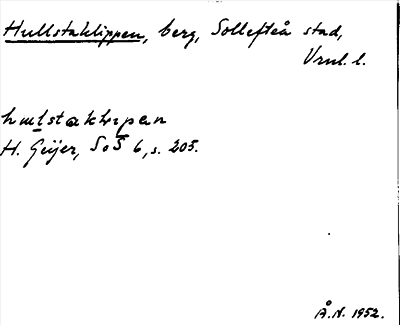 Hullstaklippen, berg, Sollefteå stad,
Vrnl. l.
hulstaklipen
H. Geijer, SoS 6, s. 205.
Å.N. 1952.